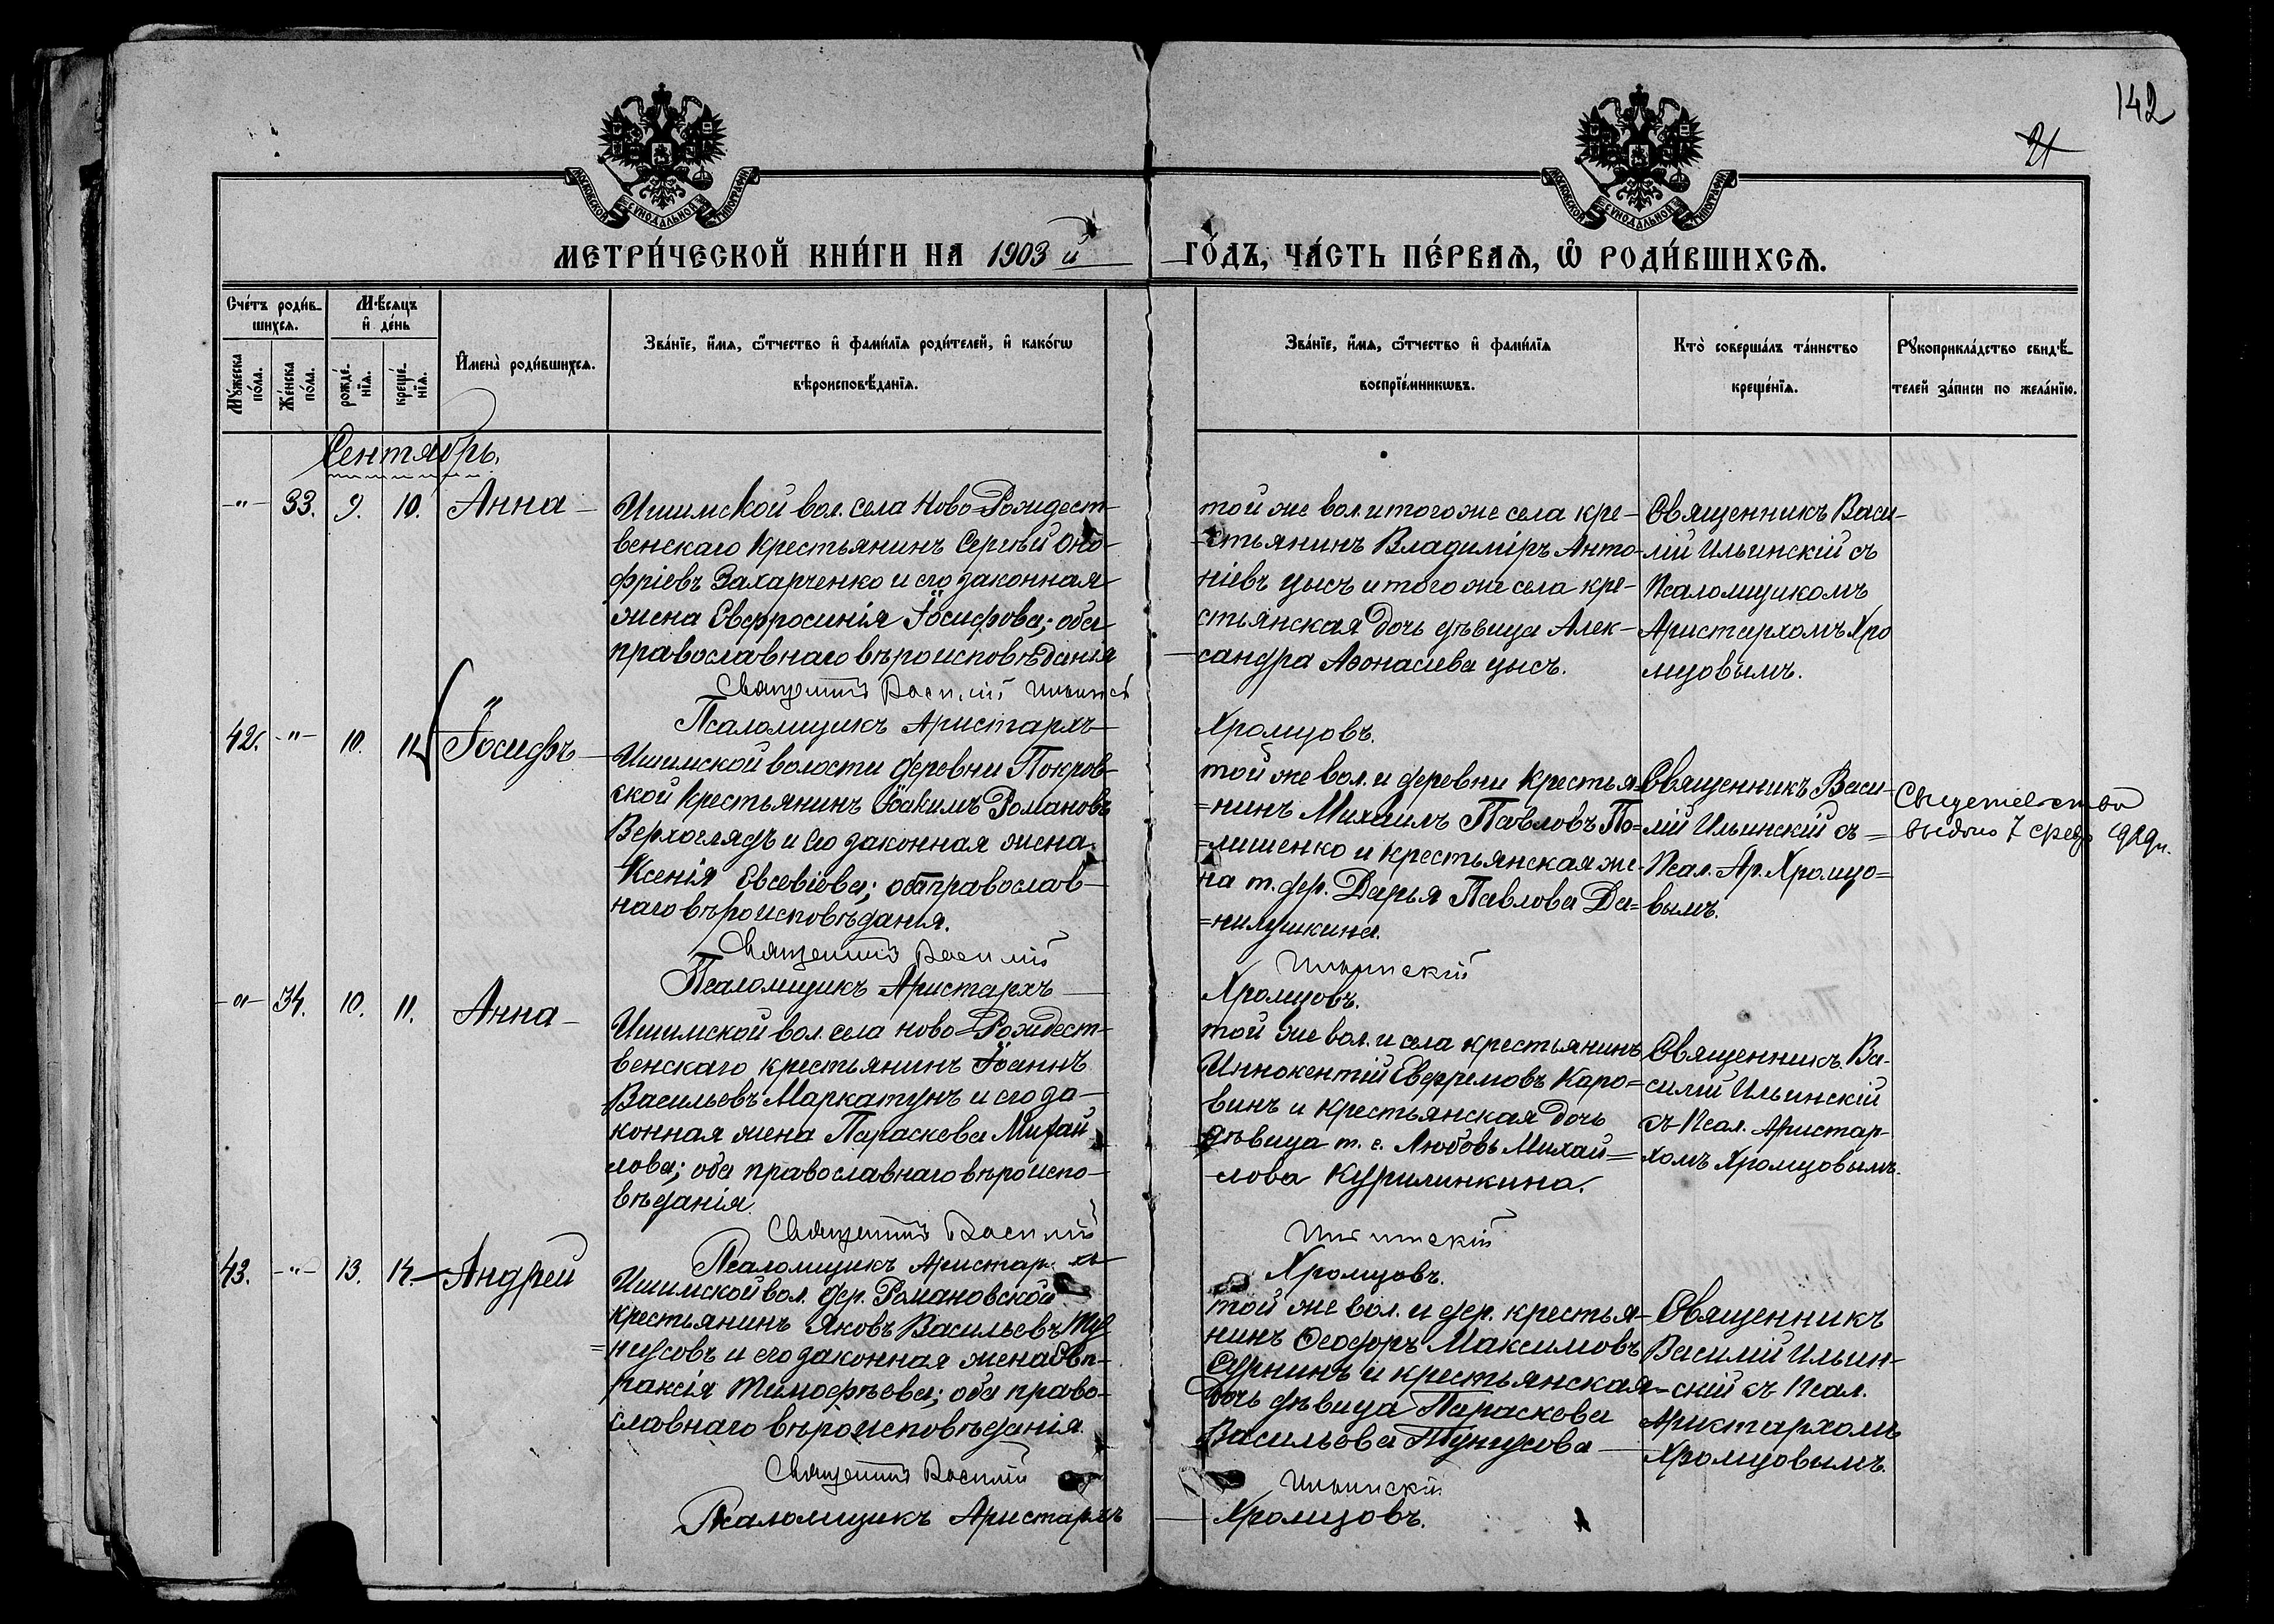 142
21
МОСКОВСКОЙ СѴНОДАЛЬНОЙ ТИПОГРАФІИ
МОСКОВСКОЙ СѴНОДАЛЬНОЙ ТИПОГРАФІИ
МЕТРИ́ЧЕСКОЙ КНИ́ГИ НА 1903 й
ГО́ДЪ, ЧА́СТЬ ПЕ́РВАѦ, Ѡ҆ РОДИ́ВШИХСѦ.
Сче́тъ роди́в-
шихсѧ.
Мѣ́сѧцъ
и҆ де́нь
Мꙋ́жеска
по́ла.
Же́нска
по́ла.
рожде́-
нїѧ.
креще́-
нїѧ.
И҆мена̀ роди́вшихсѧ.
Зва́нїе, и҆́мѧ, ѻ҆́тчество и҆ фами́лїѧ роди́телей, и҆ како́гѡ
вѣроисповѣ́данїѧ.
Зва́нїе, и҆́мѧ, ѻ҆́тчество и҆ фами́лїѧ
воспрїе́мникѡвъ.
Кто̀ соверша́лъ та́инство
креще́нїѧ.
Рꙋкоприкла́дство свидѣ́-
телей за́писи по жела́нїю.
Сентябрь.
-"- 33. 9. 10. Анна
Ишимской вол. села Ново-Рождест-
венскаго крестьянинъ Сергѣй Оно-
фріевъ Захарченко и его законная
жена Евфросинія Іосифова; оба
православнаго вѣроисповѣданія
Священникъ Василій Ильинскій
Псаломщикъ Аристархъ
той же вол. и того же села кре-
стьянинъ Владиміръ Анто-
ніевъ Цысъ и того же села кре-
стьянская дочь дѣвица Алек-
сандра Аѳонасиева Цысъ.
Хромцовъ.
Священникъ Васи-
лій Ильинскій съ
Псаломщикомъ
Аристархомъ Хро
мцовымъ.
42. -"- 10. 11. Іосифъ
Ишимской волости деревни Покров-
ской крестьянинъ Іоакимъ Романовъ
Верхоглядъ и его законная жена
Ксенія Евсевіева; оба православ-
наго вѣроисповѣданія.
Священникъ Василій
Псаломщикъ Аристархъ
той же вол. и деревни крестья-
=нинъ Михаилъ Павловъ По=
=лишенко и крестьянская же-
на т. дер. Дарья Павлова Да=
=нилушкина.
Ильинскій
Хромцовъ.
Священникъ Васи-
лій Ильинскій съ =
Псал. Ар. Хромцо=
вымъ.
Свидетельство
выдано 7
-"- 34. 10. 11. Анна
Ишимской вол. села Ново-Рождест-
венскаго крестьянинъ Іоаннъ
Васильевъ Маркатунъ и его за-
конная жена Параскева Михай
лова; оба православнаго вѣроиспо-
вѣданія.
Священникъ Василій
Псаломщикъ Аристархъ
той же вол. и села крестьянинъ
Иннокентій Евфремовъ Каро=
винъ и крестьянская дочь
дѣвица т. с. Любовь Михай=
-лова Курилинкина.
Ильинскій
Хромцовъ.
Священникъ Ва-
силій Ильинскій
съ Псал. Аристар-
хомъ Хромцовымъ.
43. -"- 13. 14. Андрей
Ишимской вол. дер. Романовской
крестьянинъ Яковъ Васильевъ Ту
=нусовъ и его законная жена Евп-
раксія Тимофѣева; оба право-
славнаго вѣроисповѣданія.
Священникъ Василій
Псаломщикъ Аристархъ
той же вол. и дер. крестья-
нинъ Ѳеодоръ Максимовъ
и крестьянская
дочь дѣвица Параскева
Васильева Тунусова
Ильинскій
Хромцовъ.
Священникъ
Василій Ильин-
скій съ Псал.
Аристархомъ
Хромцовымъ.